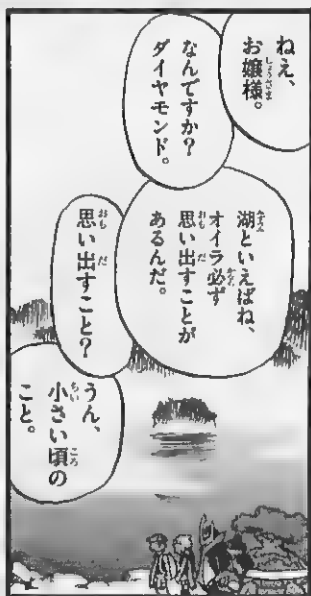 ねえ、
お嬢様。
なんですか？
ダイヤモンド。
湖といえばね、
オイラ必ず
思い出すことが
あるんだ。
思い出すこと？
うん、
小さい頃の
こと。